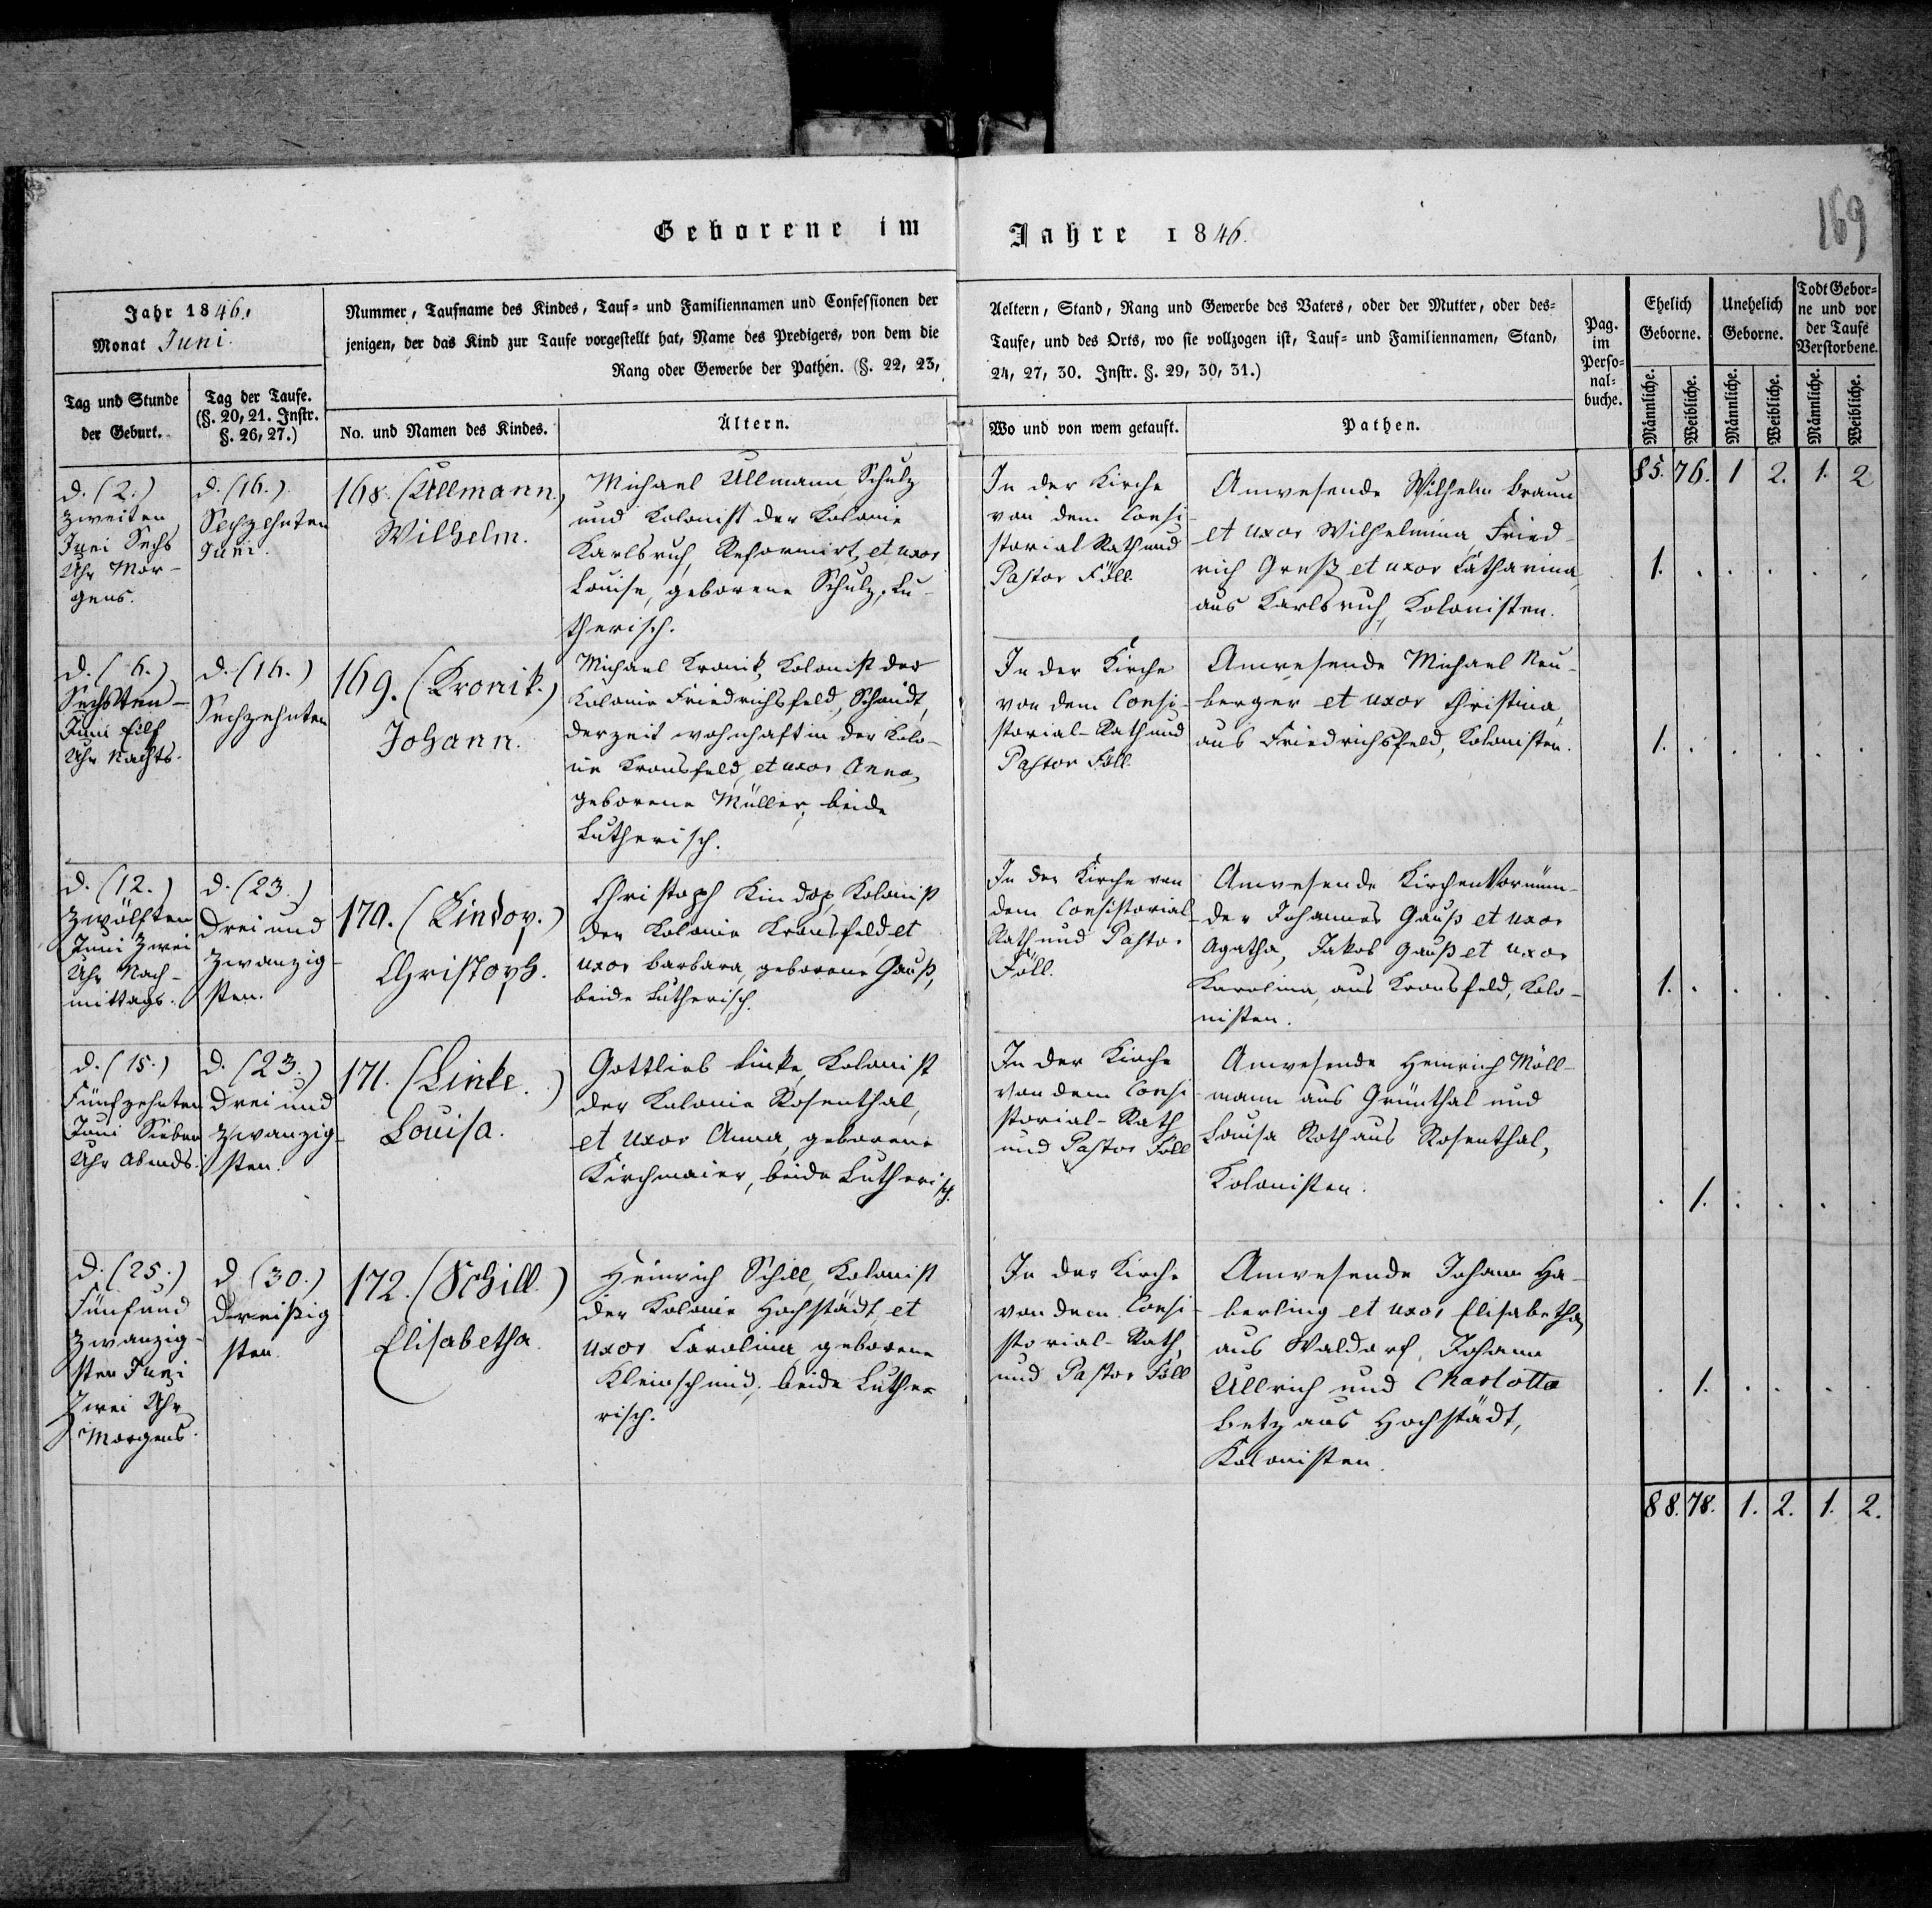 Geborene im Jahre 1846.
169
Jahr 1846.
Monat Juni.
Nummer, Taufname des Kindes, Tauf- und Familiennamen und Confessionen der
jenigen, der das Kind zur Taufe vorgestellt hat, Name des Predigers, von dem die
Rang oder Gewerbe der Pathen. (§. 22, 23,
Aeltern, Stand, Rang und Gewerbe des Vaters, oder der Mutter, oder des-
Taufe, und des Orts, wo sie vollzogen ist, Tauf- und Familiennamen, Stand,
24, 27, 30. Instr. §. 29, 30, 31.)
Pag.
im
Perso-
nal-
buche.
Ehelich
Geborne.
Unehelich
Geborne.
Todt Gebor-
ne und vor
der Taufe
Verstorbene.
Tag und Stunde
der Geburt.
Tag der Taufe.
(§. 20, 21. Instr.
§. 26, 27.)
No. und Namen des Kindes.
Ältern.
Wo und von wem getauft.
Pathen.
Männliche.
Weibliche.
Männliche.
Weibliche.
Männliche.
Weibliche.
85. 76. 1 2. 1. 2
d. (2.)
Zweiten
Juni Sechs
Uhr Mor-
gens.
d. (16.)
Sechzehnten
Juni.
168. (Ullmann,)
Wilhelm.
Michael Ullmann, Schulz
und Kolonist der Kolonie
Karlsruh, Reformirt, et uxor
Louise, geborene Schulz, Lu-
therisch.
In der Kirche
von dem Consi-
storial Rath und
Pastor Föll.
Anwesende Wilhelm Braun
et uxor Wilhelmina, Fried-
rich Groß et uxor Katharina,
aus Karlsruh, Kolonisten.
1. . . . . .
d. (6.)
Sechsten
Juni Eilf
Uhr Nachts.
d. (16.)
Sechzehnten
169. (Kronik.)
Johann.
Michael Kronik, Kolonist der
Kolonie Friedrichsfeld, Schmidt,
derzeit wohnhaft in der Kolo-
nie Kronsfeld, et uxor Anna,
geborene Müller, beide
Lutherisch.
In der Kirche
von dem Consi-
storial-Rath und
Pastor Föll.
Anwesende Michael Neu-
berger et uxor Christina,
aus Friedrichsfeld, Kolonisten.
1. . . . . .
d. (12.)
Zwölften
Juni Zwei
Uhr Nach-
mittags.
d. (23.)
Drei und
zwanzig-
sten.
170. (Kindop.)
Christoph.
Christoph Kindop, Kolonist
der Kolonie Kronsfeld, et
uxor Barbara, geborene Gauß,
beide Lutherisch.
In der Kirche von
dem Consistorial-
Rath und Pastor
Föll.
Anwesende Kirchen Vormün-
der Johannes Gauß et uxor
Agatha, Jakob Gauß et uxor
Karolina, aus Kronsfeld, Kolo-
nisten.
1. . . . . .
d. (15.)
Fünfzehnten
Juni Sieben
Uhr Abends.
d. (23.)
Drei und
zwanzig-
sten.
171. (Linke.)
Louisa.
Gottlieb Linke, Kolonist
der Kolonie Rosenthal,
et uxor Anna, geborene
Kirchmaier, beide Lutherisch.
In der Kirche
von dem Consi-
storial-Rath
und Pastor Föll
Anwesende Heinrich Möll-
mann aus Grünthal und
Louisa Roth aus Rosenthal,
Kolonisten.
. 1. . . . .
d. (25.)
Fünf und
zwanzig-
sten Juni
Zwei Uhr
Morgens.
d. (30.)
Dreißig
sten.
172. (Schill.)
Elisabetha
Heinrich Schill, Kolonist
der Kolonie Hochstädt, et
uxor Carolina geborene
Kleinschmid, beide Luthe-
risch.
In der Kirche
von dem Consi-
storial-Rath,
und Pastor Föll
Anwesende Johann Ha-
berling et uxor Elisabetha
aus Waldorf, Johann
Ullrich und Charlotta
Betz aus Hochstädt,
Kolonisten.
. 1. . . . .
88. 78. 1. 2. 1. 2.